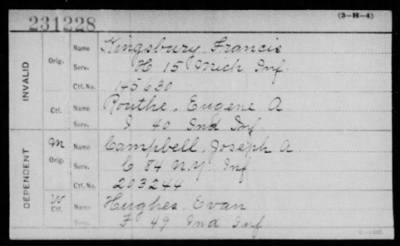 231228
(3-H-4)
INVALID
Orig.
Name Kingsbury, Francis
Serv. H 15 Mich Inf.
Ctf. No. 145630
Ctf.
Name Routhe, Eugene A
Serv. I 40 Ind Inf
DEPENDENT
M
Orig.
Name Campbell, Joseph A.
Serv. C 84 N.Y. Inf
Ctf. No. 203244
W
Ctf.
Name Hughes, Evan
Serv. F 49 Ind Inf